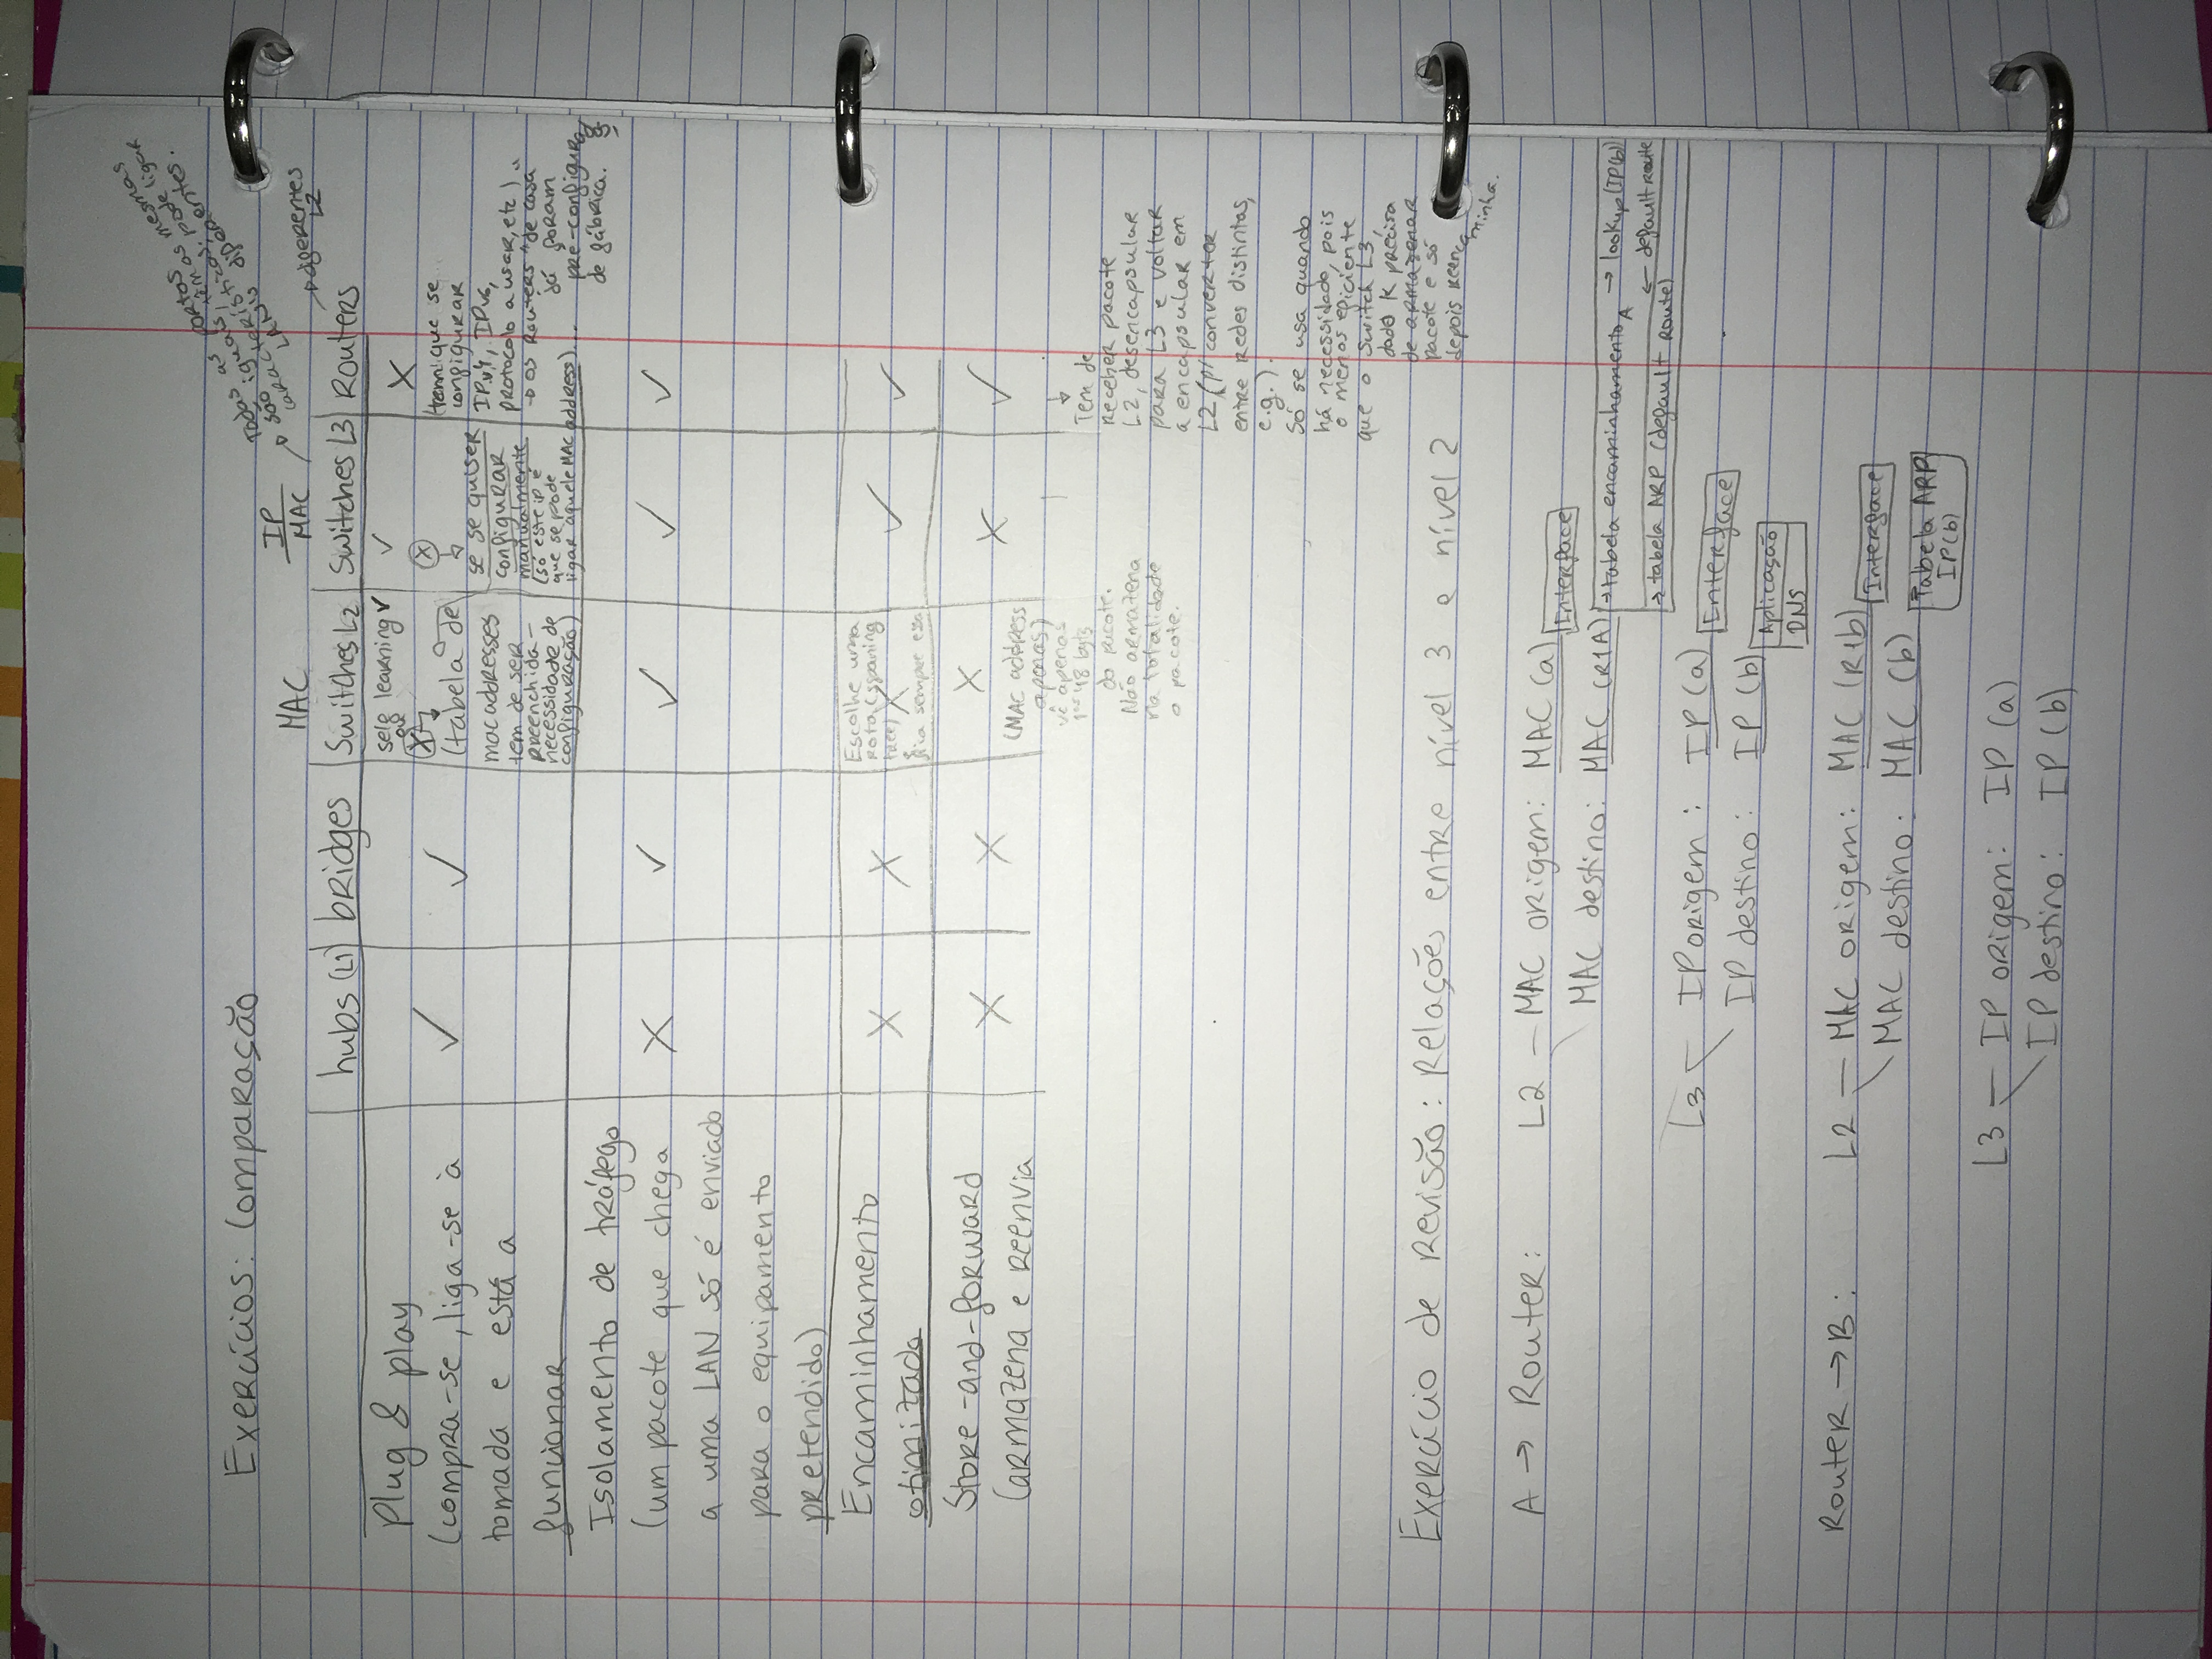 Exercícios: Comparação
Todas as portas
são iguais, têm as mesmas
características, pode ligar
LANs diferentes.
MAC
IP
MAC
→ diferentes
L2
hubs (L1)
bridges
Switches L2
Switches L3
Routers
Plug & play
(compra-se, liga-se à
tomada e está a
funcionar
✓
✓
self learning ✓
ou
X
(tabela de
mac addresses
tem de ser
preenchida -
necessidade de
configuração)
✓
X
se se quiser
configurar
manualmente
(só este ip é
que se pode
ligar àquele MAC address)...
X
(tem que se
configurar
IPv4, IPv6,
protocolo a usar, etc)
→ os Routers "de casa"
já foram
pré-configurados
de fábrica.
Isolamento de tráfego
(um pacote que chega
a uma LAN só é enviado
para o equipamento
pretendido)
X
✓
✓
✓
✓
Encaminhamento
otimizado
X
X
Escolhe uma
rota (spaning
tree) X
fica sempre essa
✓
✓
Store-and-forward
(armazena e reenvia
X
X
X
(MAC address
apenas)
vê apenas
1os 48 byts
do pacote.
Não armazena
na totalidade
o pacote.
X
✓
Tem de
receber pacote
L2, desencapsular
para L3 e voltar
a encapsular em
L2 (p/ converter
entre redes distintas,
e.g.).
Só se usa quando
há necessidade, pois
é menos eficiente
que o Switch L3,
dado k precisa
de armazenar
pacote e só
depois reencaminha.
Exercício de Revisão: Relações entre nível 3 e nível 2
A → Router: L2 — MAC origem: MAC (a) Interface
MAC destino: MAC (R1A) → tabela encaminhamento A → lookup (IP(b))
← default route
→ tabela ARP (default route)
L3 — IP origem: IP (a) Interface
IP destino: IP (b) Aplicação
DNS
Router → B: L2 — MAC origem: MAC (R1b) Interface
MAC destino: MAC (b) Tabela ARP
IP(b)
L3 — IP origem: IP (a)
IP destino: IP (b)